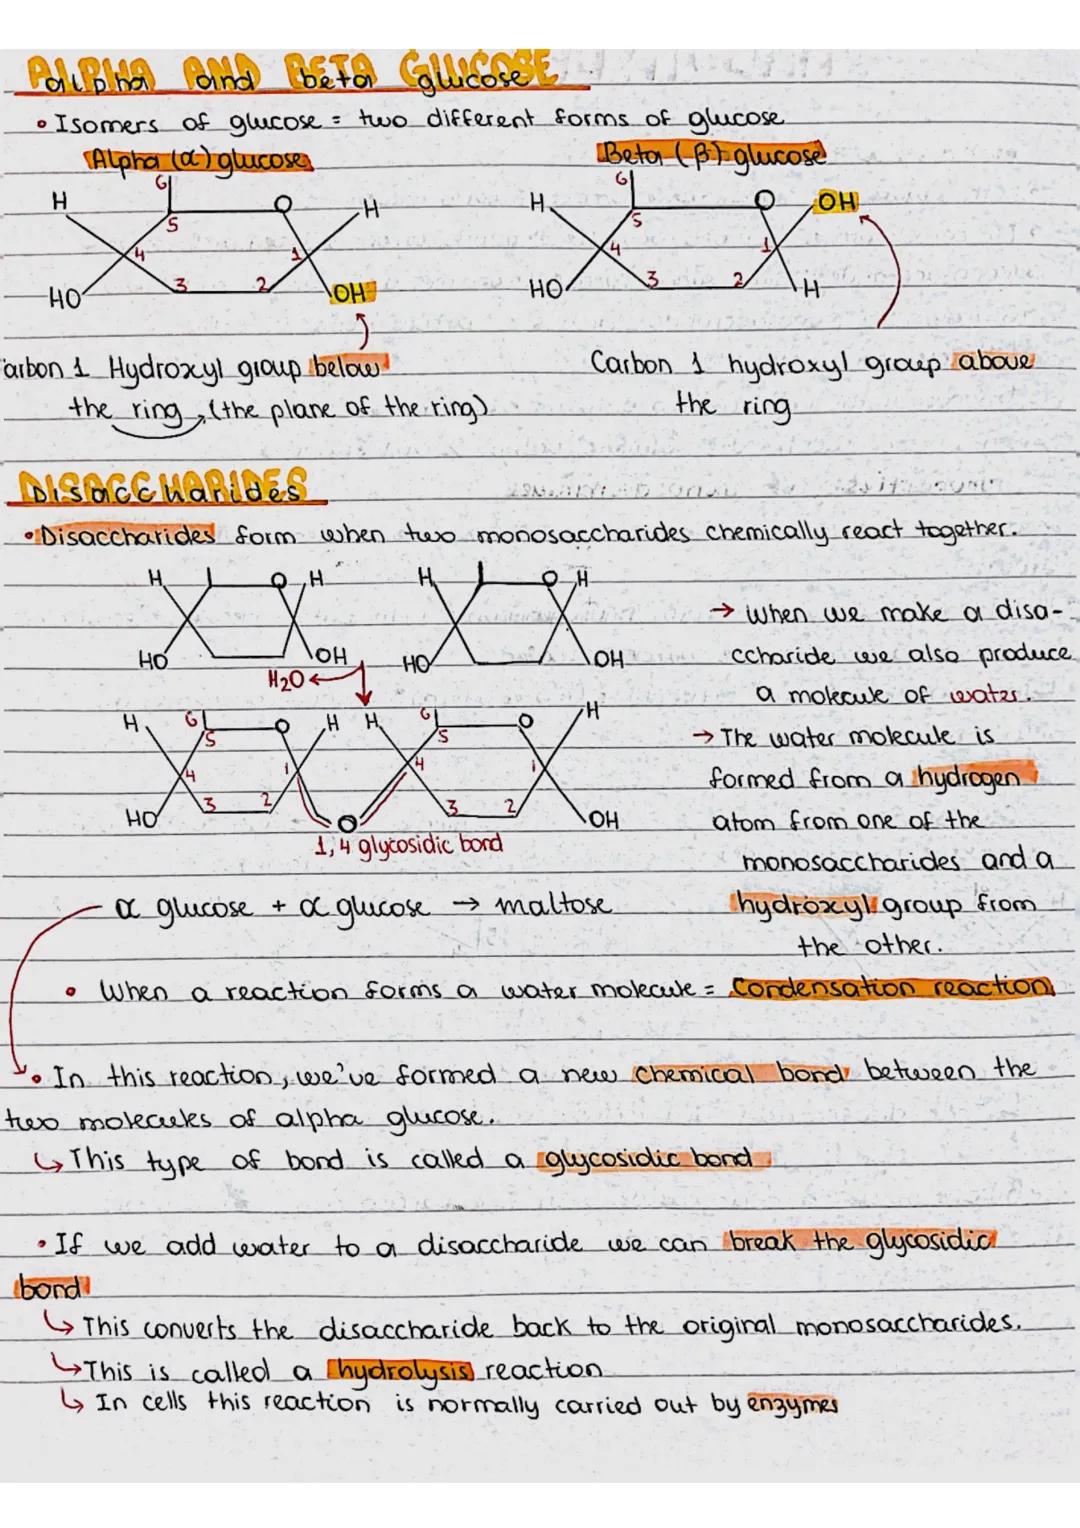 ALPHA AND BETA GLUCOSE
alpha and beta glucose
• Isomers of glucose = two different forms of glucose
Alpha (α) glucose
Beta (β) glucose
6
6
H
O
H
H
O
OH
5
5
4
1
4
1
3
2
3
2
HO
OH
HO
H
arbon 1 Hydroxyl group below
the ring, (the plane of the ring)
Carbon 1 hydroxyl group above
the ring
DISACCHARIDES
Disaccharides
• Disaccharides form when two monosaccharides chemically react together.
H
O
H
H
O
H
HO
OH
HO
OH
H2O
→ When we make a disa-
ccharide we also produce
a molecule of water.
H
6
O
H
H
6
O
H
5
5
4
1
4
1
3
2
3
2
HO
O
OH
1,4 glycosidic bond
→ The water molecule is
formed from a hydrogen
atom from one of the
monosaccharides and a
hydroxyl group from
the other.
α glucose + α glucose → maltose
• When a reaction forms a water molecule = Condensation reaction
• In this reaction, we've formed a new chemical bond between the
two molecules of alpha glucose.
↳ This type of bond is called a glycosidic bond
• If we add water to a disaccharide we can break the glycosidic
bond
↳ This converts the disaccharide back to the original monosaccharides.
↳ This is called a hydrolysis reaction
↳ In cells this reaction is normally carried out by enzymes